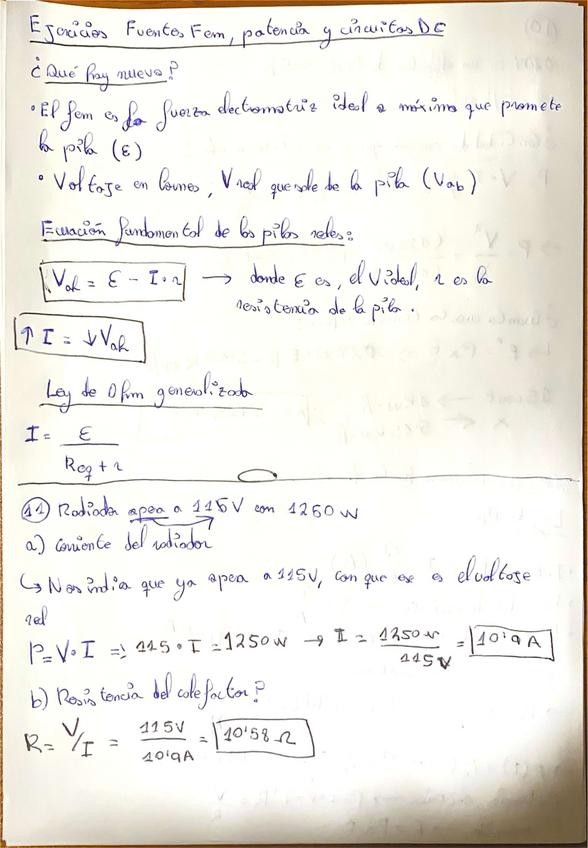 Ejercicios Fuentes Fem, potencia y circuitos DC
¿Qué hay nuevo?
• El fem es la fuerza electromotriz ideal o máximo que promete
la pila (ε)
• Voltaje en bornes, V real que sale de la pila (Vab)
Ecuación fundamental de las pilas reales:
Vab = ε - I · r → donde ε es, el V ideal, r es la
resistencia de la pila.
↑ I = ↓ Vab
Ley de Ohm generalizada
I = ε / (Req + r)
11 Radiador opera a 115V con 1250 W
a) corriente del radiador
↳ Nos indica que ya opera a 115V, con que ese es el voltaje
real
P = V · I => 115 · I = 1250 W → I = 1250 W / 115 V = 10'9 A
b) Resistencia del calefactor?
R = V/I = 115V / 10'9A = 10'58 Ω